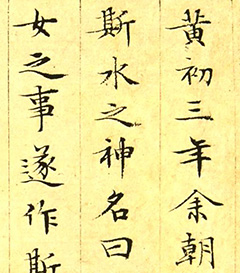 黄初三年余朝
斯水之神名曰
女之事遂作斯